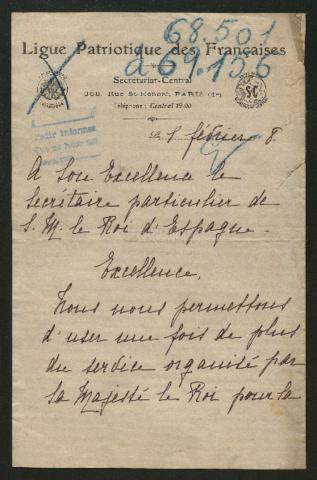 68.501
a 69.156
Ligue Patriotique des Françaises
Secrétariat-Central
368, Rue St-Honoré, PARIS (1er)
Téléphone : Central 19.00
Le 5 février 8
pedir informes
A Son Excellence le
Secrétaire particulier de
S. M. le Roi d'Espagne.
Excellence,
Nous nous permettons
d'user une fois de plus
du service organisé par
Sa Majesté le Roi pour la